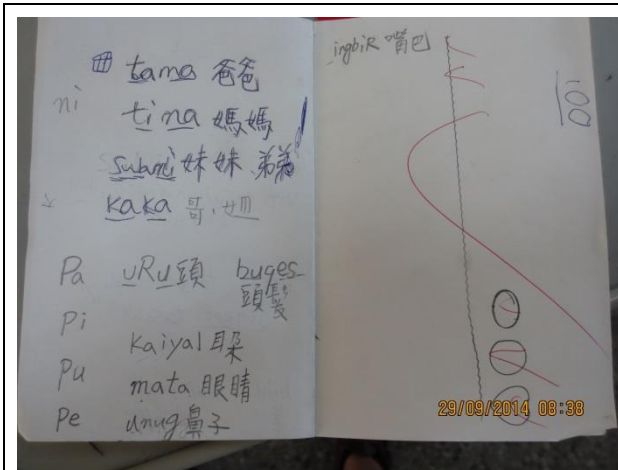 tama 爸爸
ni
tina 媽媽
subani 妹妹 弟弟
kaka 哥.姐
Pa uRu頭 buges 頭髮
Pi
kaiyal 耳朵
Pu
mata 眼睛
Pe unug鼻子
ingbiR 嘴巴
100
29/09/2014 08:38